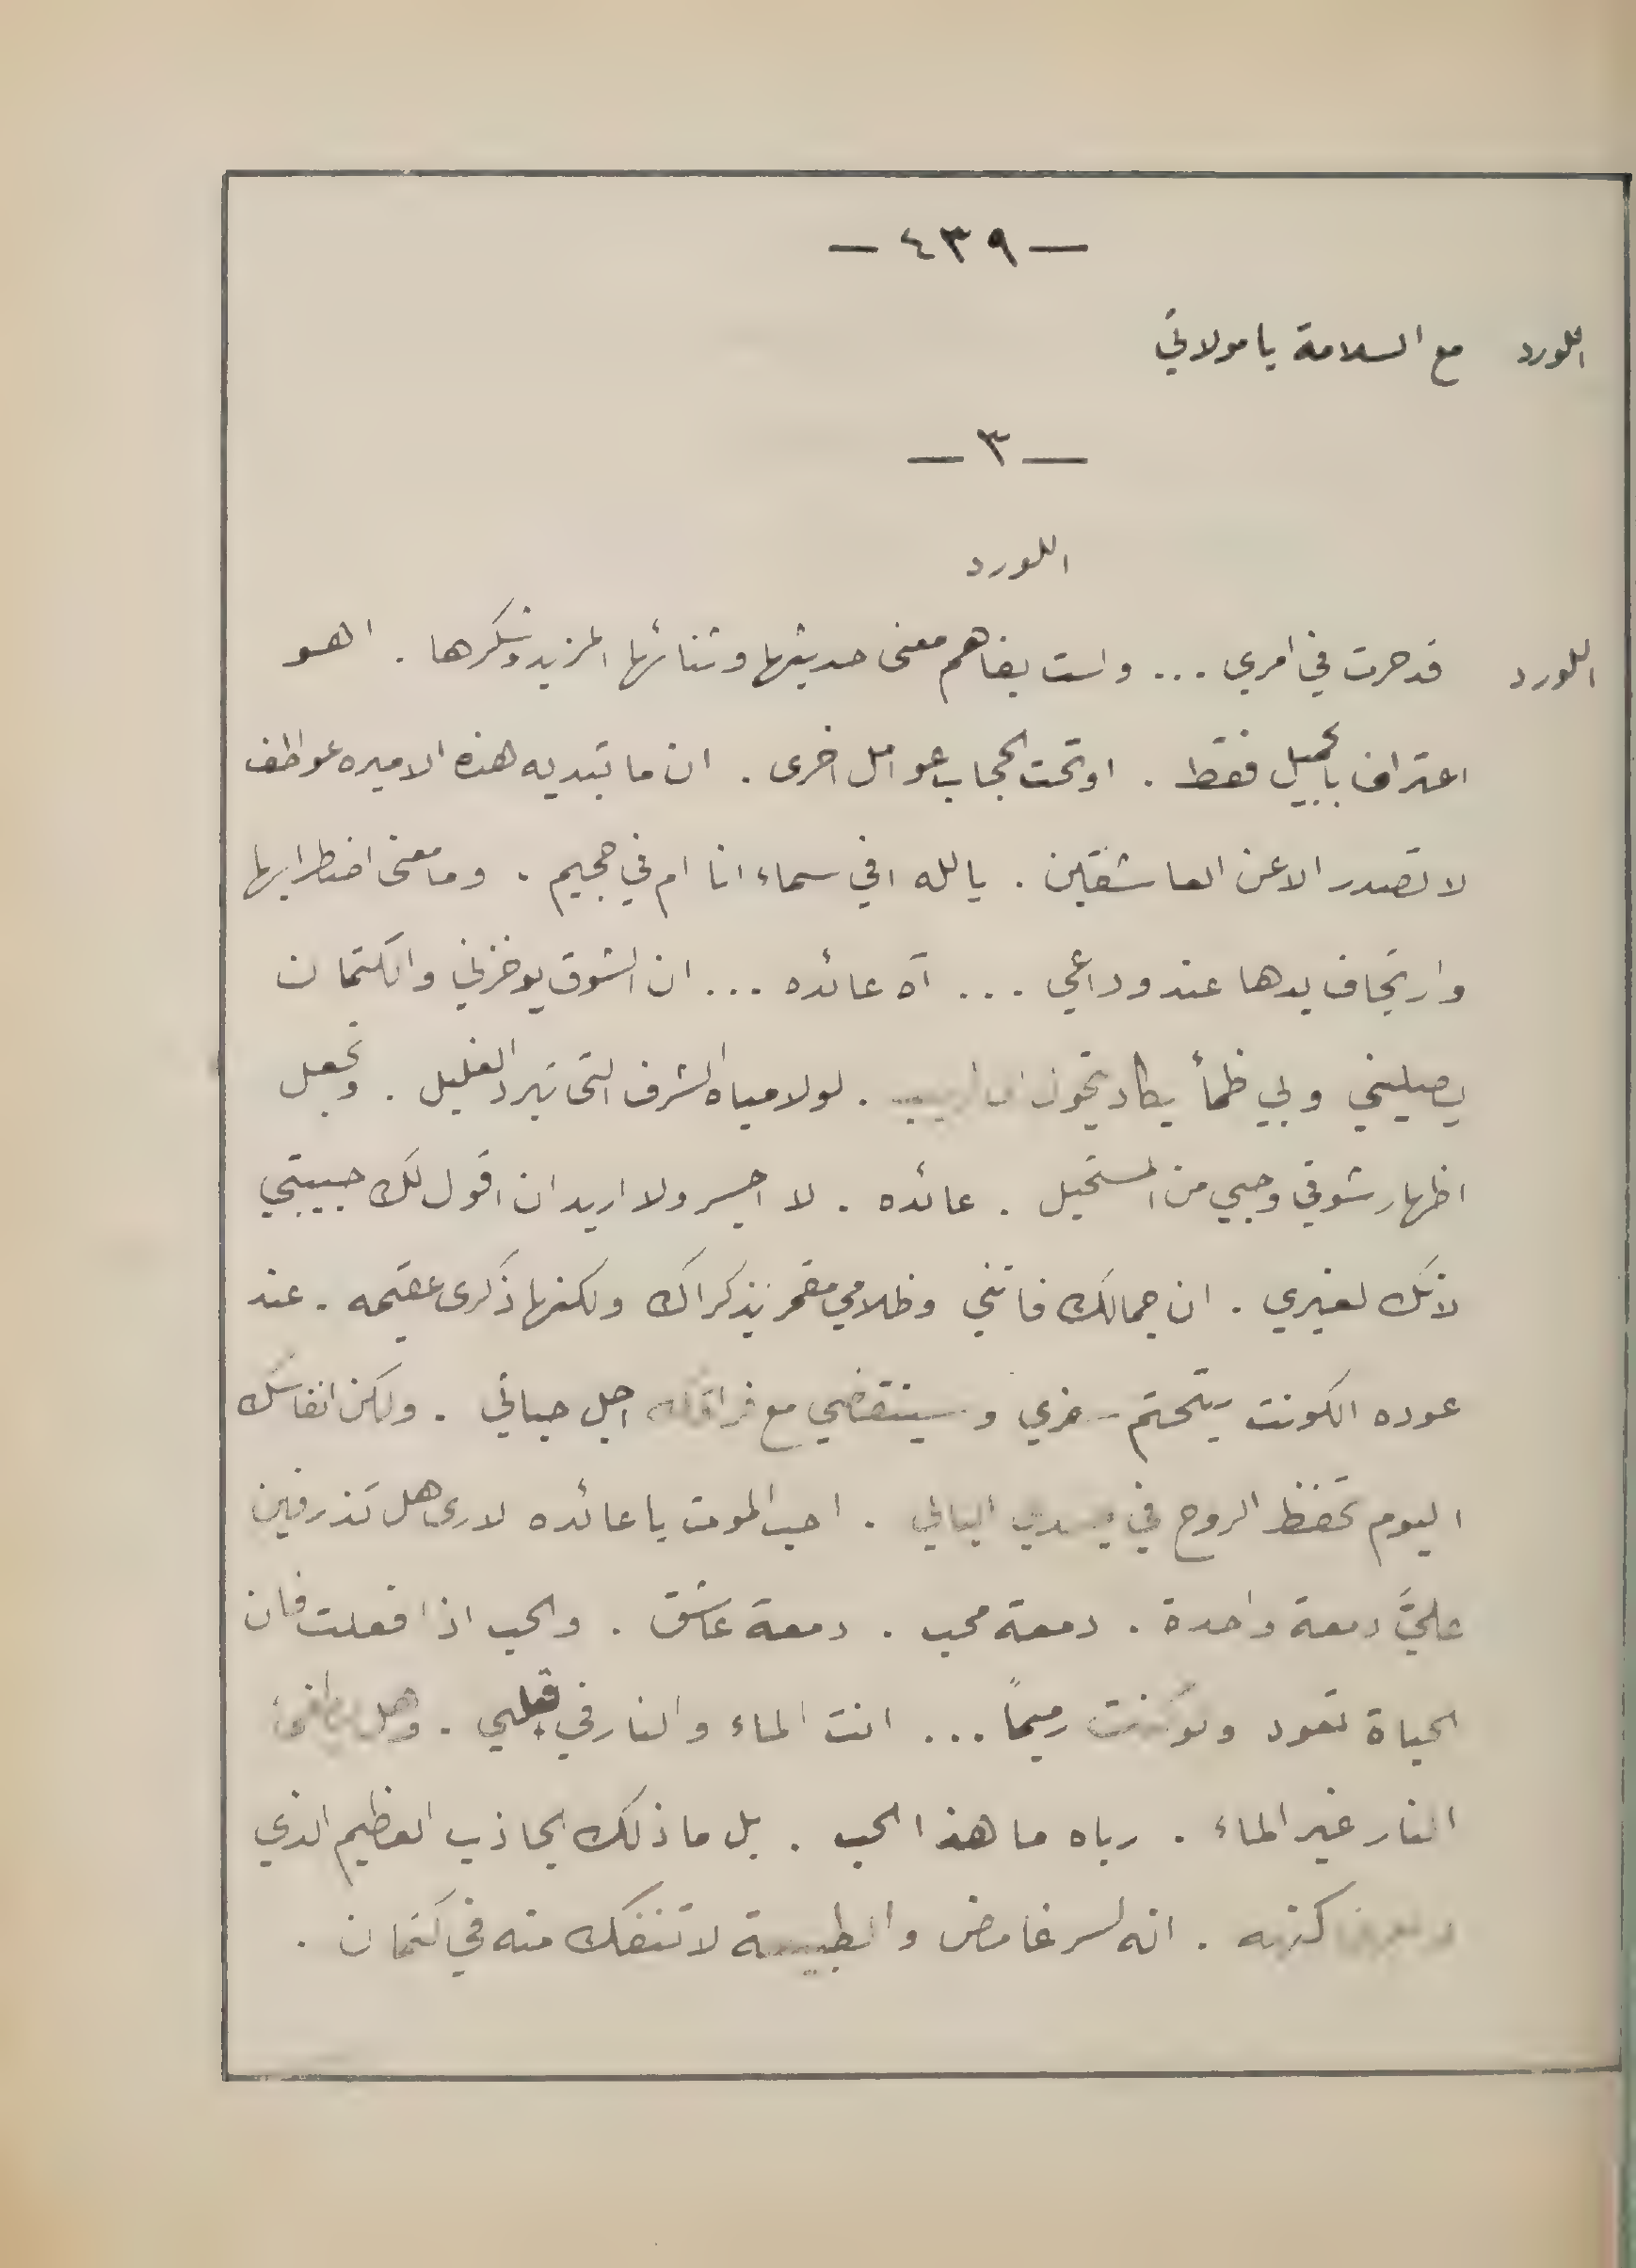 — ٤٣٩ —
اللورد مع السلامة يا مولاتي
— ٣ —
اللورد
اللورد قد حرت في امري ... ولست بفاهم معنى حديثها وثنائها المزيد وشكرها . اهو
اعتراف بالجميل فقط . او تحت الحجاب عوامل اخرى . ان ما تبديه هذه الاميره عواطف
لا تصدر الا عن العاشقين . يا لله افي سماء انا ام في جحيم . وما معنى اضطرابها
وارتجاف يدها عند وداعي ... آه عائده ... ان الشوق يوخزني والكتمان
يصليني وبي ظمأ يكاد يكون . لولا مياه الشرف التي تبرد الغليل . وتجعل
اظهار شوقي وحبي من المستحيل . عائده . لا اجسر ولا اريد ان اقول لك حبيبتي
لانك لغيري . ان جمالك فاتني وظلامي مقمر بذكراك ولكنها ذكرى عقيمه . عند
عوده الكونت يتحتم سفري وسينقضي مع فراقك اجل حياتي . ولكن انفاسك
اليوم تحفظ الروح في البالي . احب الموت يا عائده لارى هل تذرفين
عليَّ دمعة واحدة . دمعة محب . دمعة عاشق . والحب اذا فعلت فان
الحياة تعود ولو كنت رميماً ... انت الماء والنار في قلبي . وهل يطفئ
النار غير الماء . رباه ما هذا الحب . بل ما ذلك الجاذب العظيم الذي
كنهه . انه لسر غامض والطبيعة لا تنفك منه في كتمان .